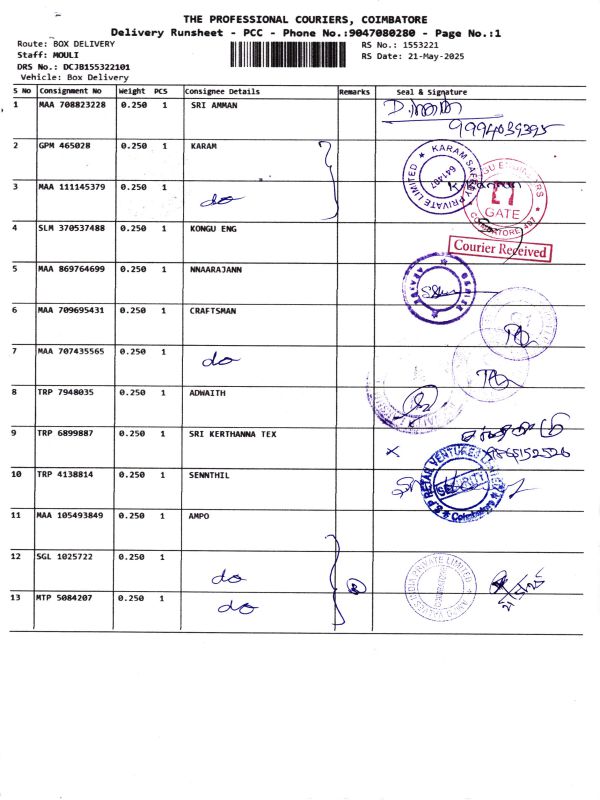 THE PROFESSIONAL COURIERS, COIMBATORE
Delivery Runsheet - PCC - Phone No.:9047080280 - Page No.:1
Route: BOX DELIVERY
Staff: MOULI
DRS No.: DCJB155322101
Vehicle: Box Delivery
RS No.: 1553221
RS Date: 21-May-2025
S No Consignment No Weight PCS Consignee Details Remarks Seal & Signature
1 MAA 708823228 0.250 1 SRI AMMAN
9994039395
2 GPM 465028 0.250 1 KARAM
KARAM SAFETY PRIVATE LIMITED
641407
3 MAA 111145379 0.250 1 do
GATE
COIMBATORE
4 SLM 370537488 0.250 1 KONGU ENG
Courier Received
5 MAA 869764699 0.250 1 NNAARAJANN
6 MAA 709695431 0.250 1 CRAFTSMAN
7 MAA 707435565 0.250 1 do
8 TRP 7948035 0.250 1 ADWAITH
9 TRP 6899887 0.250 1 SRI KERTHANNA TEX
X
10 TRP 4138814 0.250 1 SENNTHIL
SECURITY
Coimbatore
11 MAA 105493849 0.250 1 AMPO
12 SGL 1025722 0.250 1 do
INDIA PRIVATE LIMITED
21/5/25
13 MTP 5084207 0.250 1 do